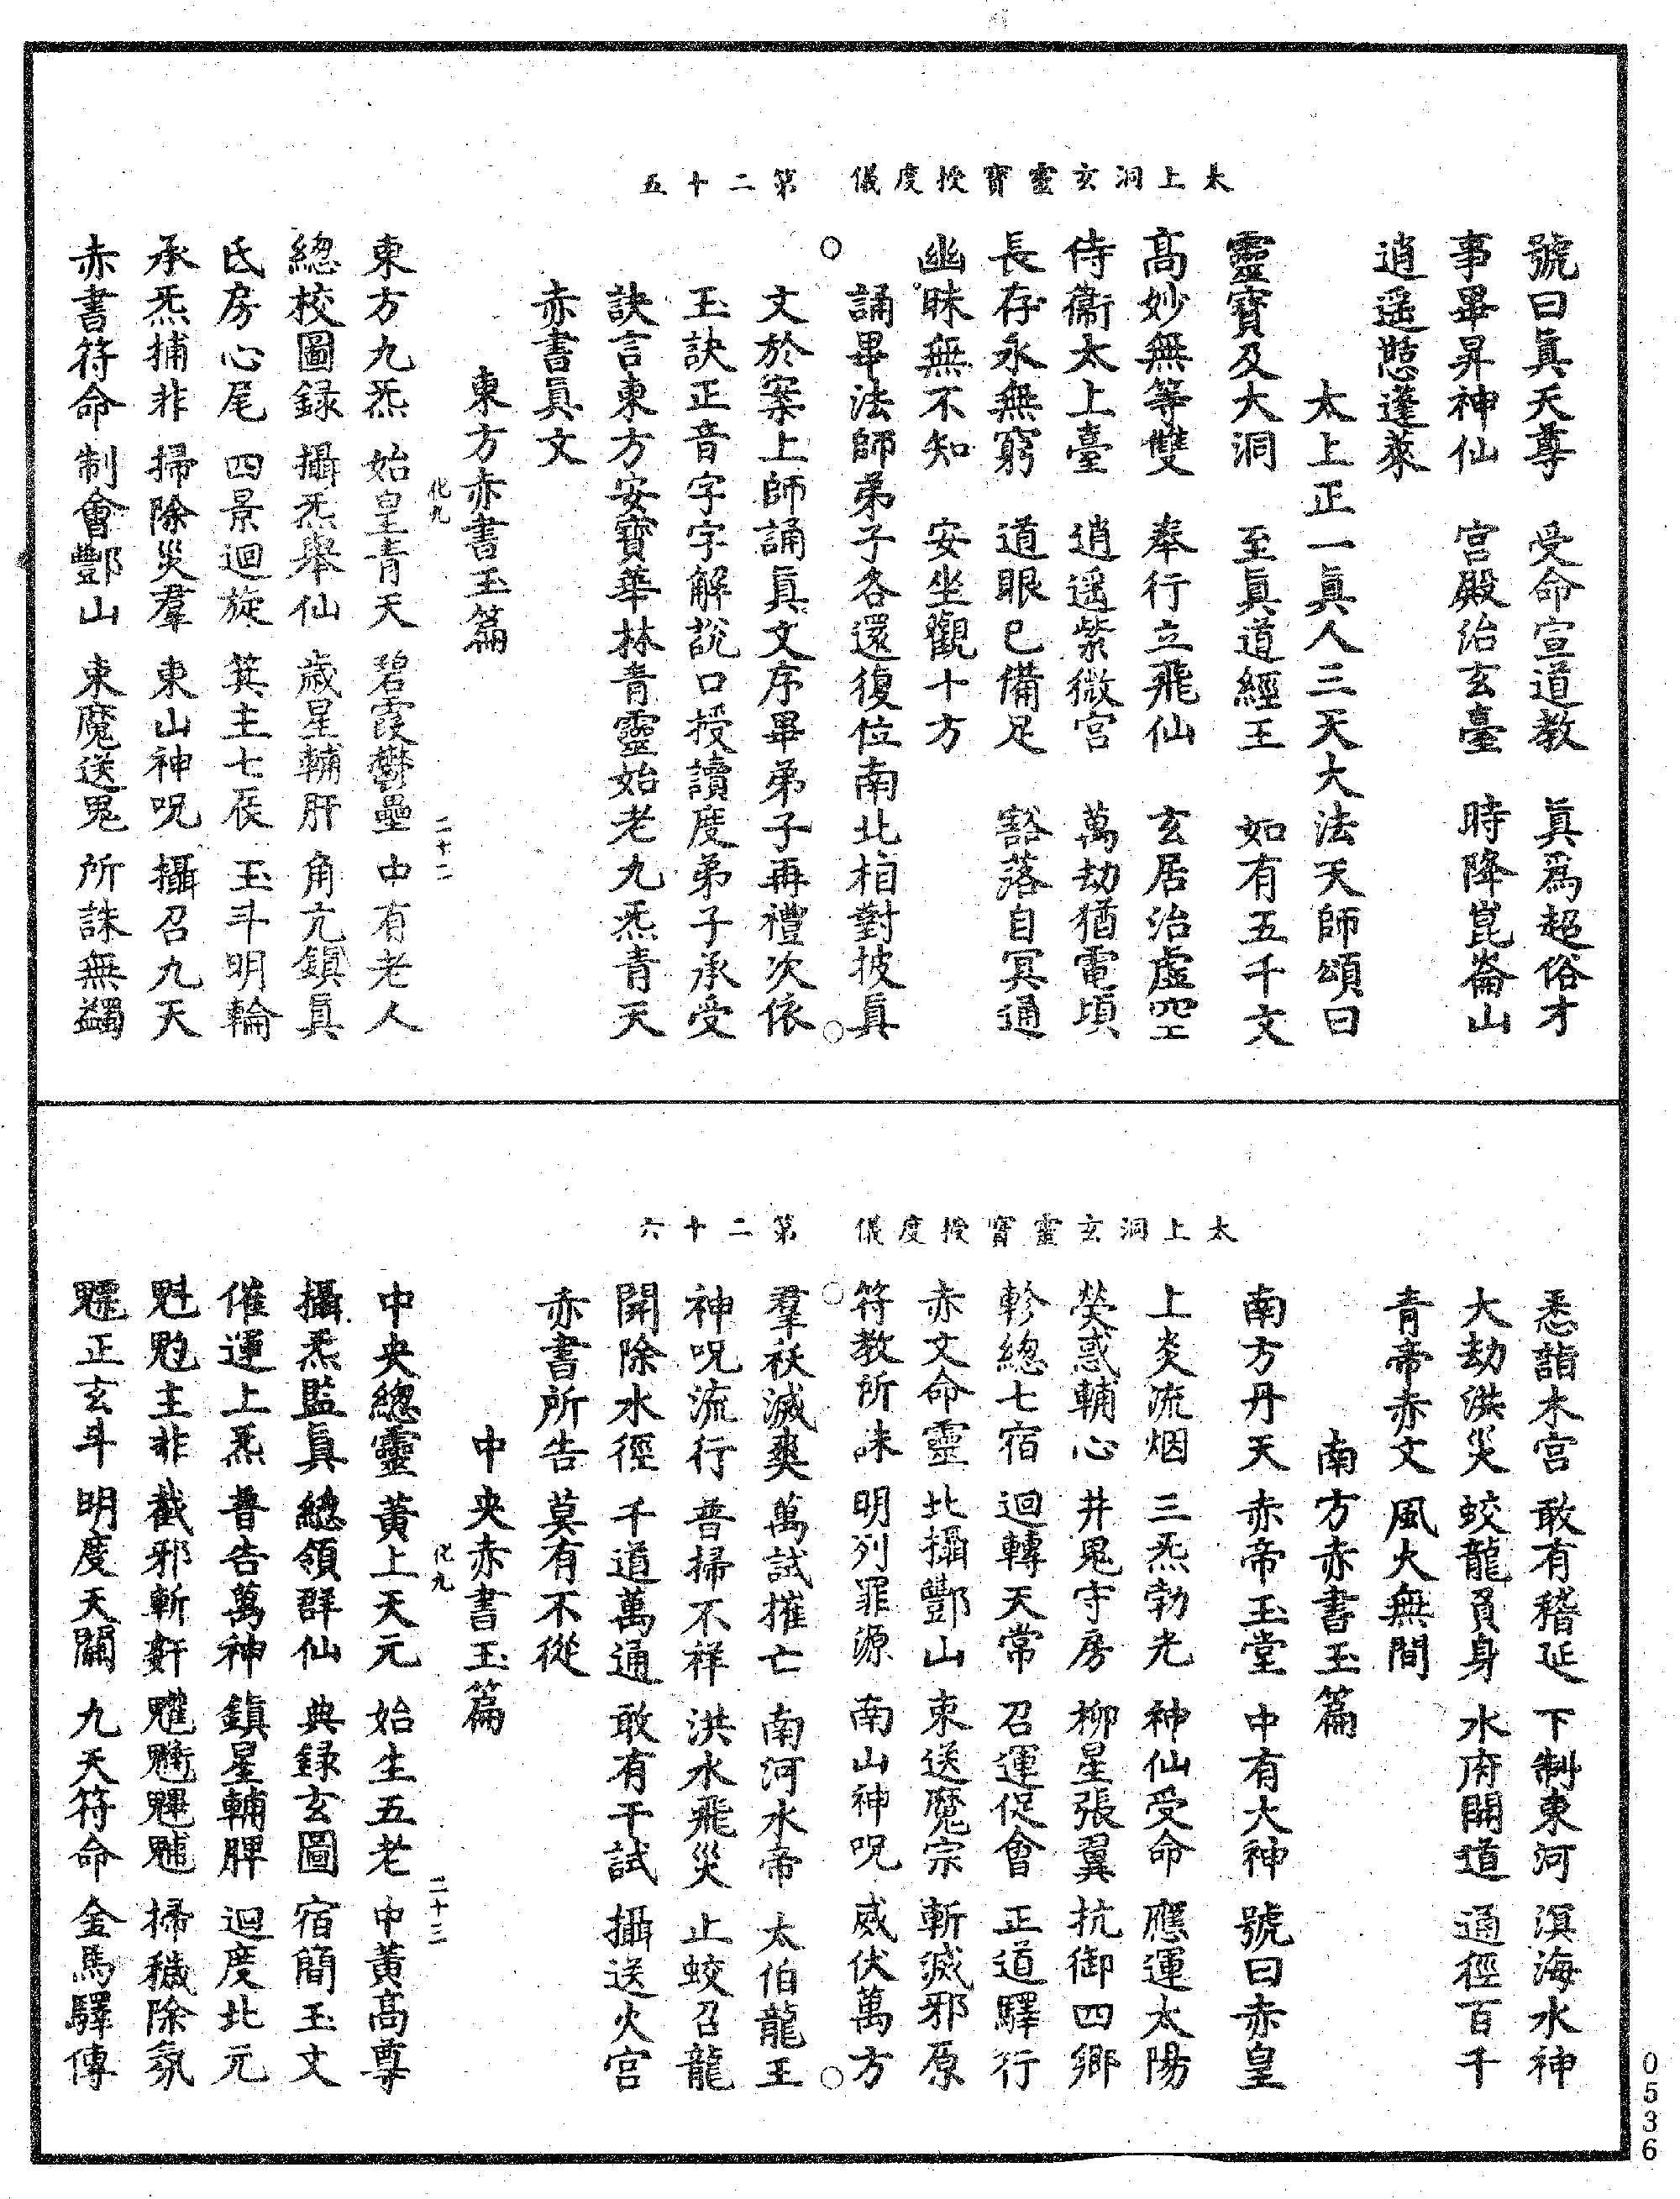 太上洞玄靈寶授度儀　第二十五
號曰眞天尊　受命宣道教　眞爲超俗才
事畢昇神仙　宫殿治玄臺　時降崑崙山
逍遥憩蓬萊
太上正一眞人三天大法天師頌曰
靈寶及大洞　至眞道經王　如有五千文
髙妙無等雙　奉行立飛仙　玄居治虚空
侍衞太上臺　逍遥紫微宫　萬劫猶電頃
長存永無窮　道眼已備足　豁落自冥通
幽昧無不知　安坐觀十方
誦畢法師弟子各還復位南北相對披眞
文於案上師誦眞文序畢弟子再禮次依
玉訣正音字字解説口授讀度弟子承受
訣言東方安寶華林青靈始老九炁青天
赤書眞文
東方赤書玉篇
化九　二十二
東方九炁　始皇青天　碧霞鬱壘　中有老人
緫校圖録　攝炁舉仙　歲星輔肝　角亢鎮眞
氐房心尾　四景迴旋　箕主七辰　玉斗明輪
承炁捕非　掃除災羣　東山神呪　攝召九天
赤書符命　制會酆山　束魔送鬼　所誅無蠲
太上洞玄靈寶授度儀　第二十六
悉詣木宫　敢有稽延　下制東河　溟海水神
大劫洪災　蛟龍負身　水府開道　通徑百千
青帝赤文　風火無間
南方赤書玉篇
南方丹天　赤帝玉堂　中有大神　號曰赤皇
上炎流烟　三炁勃光　神仙受命　應運太陽
熒惑輔心　井鬼守房　柳星張翼　抗御四鄉
軫緫七宿　迴轉天常　召運促會　正道驛行
赤文命靈　北攝酆山　束送魔宗　斬滅邪原
符教所誅　明列罪源　南山神呪　威伏萬方
羣祆滅爽　萬試摧亡　南河水帝　太伯龍王
神呪流行　普掃不祥　洪水飛災　止蛟召龍
開除水徑　千道萬通　敢有干試　攝送火宫
赤書所告　莫有不從
中央赤書玉篇
化九　二十三
中央緫靈　黃上天元　始生五老　中黃髙尊
攝炁監眞　緫領群仙　典録玄圖　宿簡玉文
催運上炁　普告萬神　鎮星輔脾　迴度北元
魁魓主非　截邪斬姧　掃穢除氛
正玄斗　明度天關　九天符命　金馬驛傳
0536